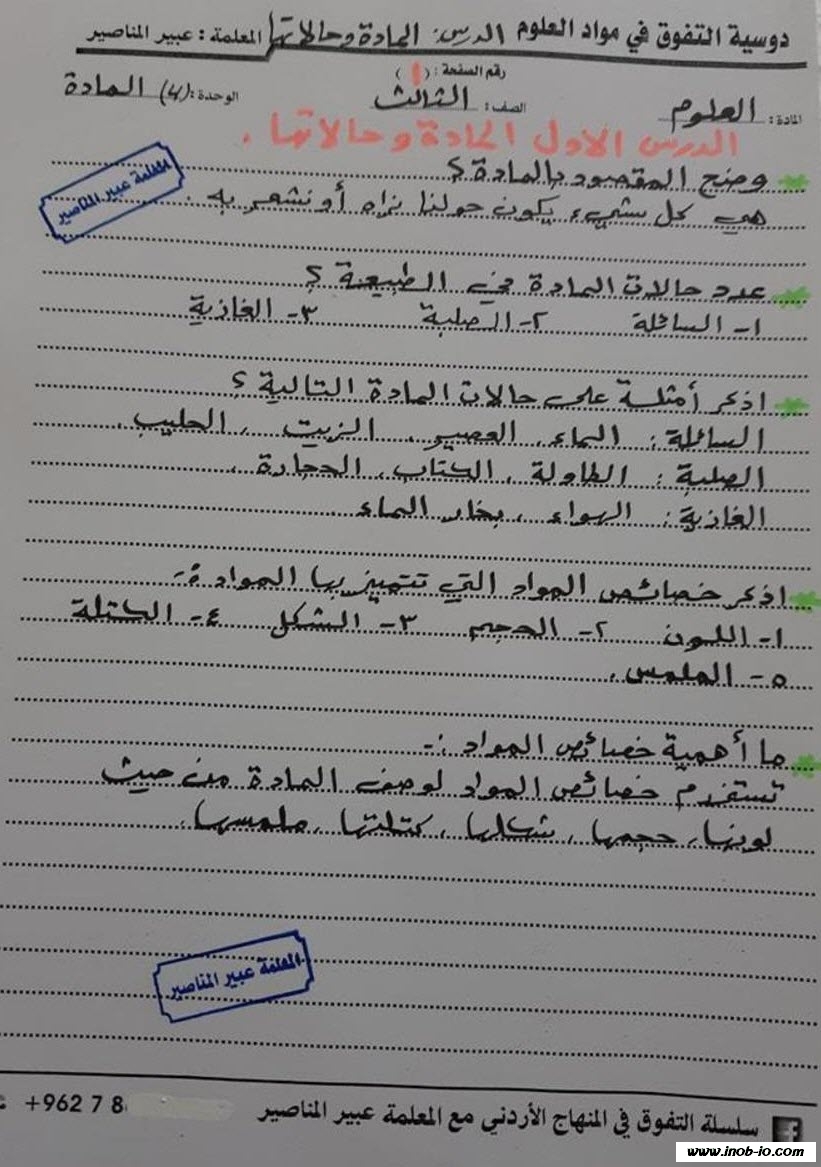 دوسية التفوق في مواد العلوم الدرس: المادة وحالاتها المعلمة: عبير المناصير
رقم الصفحة: (١)
المادة: العلوم الصف: الثالث الوحدة: (٤) المادة
الدرس الاول المادة وحالاتها.
وضح المقصود بالمادة؟
هي كل شيء يكون حولنا نراه أو نشعر به.
المعلمة عبير المناصير
عدد حالات المادة في الطبيعة؟
١- السائلة ٢- الصلبة ٣- الغازية
اذكر أمثلة على حالات المادة التالية؟
السائلة: الماء، العصير، الزيت، الحليب.
الصلبة: الطاولة، الكتاب، الحجارة.
الغازية: الهواء، بخار الماء.
اذكر خصائص المواد التي تتميز بها المواد:-
١- اللون ٢- الحجم ٣- الشكل ٤- الكتلة
٥- الملمس.
ما أهمية خصائص المواد:-
تستخدم خصائص المواد لوصف المادة من حيث
لونها، حجمها، شكلها، كتلتها، ملمسها.
المعلمة عبير المناصير
سلسلة التفوق في المنهاج الأردني مع المعلمة عبير المناصير +962 7 8
www.inob-io.com